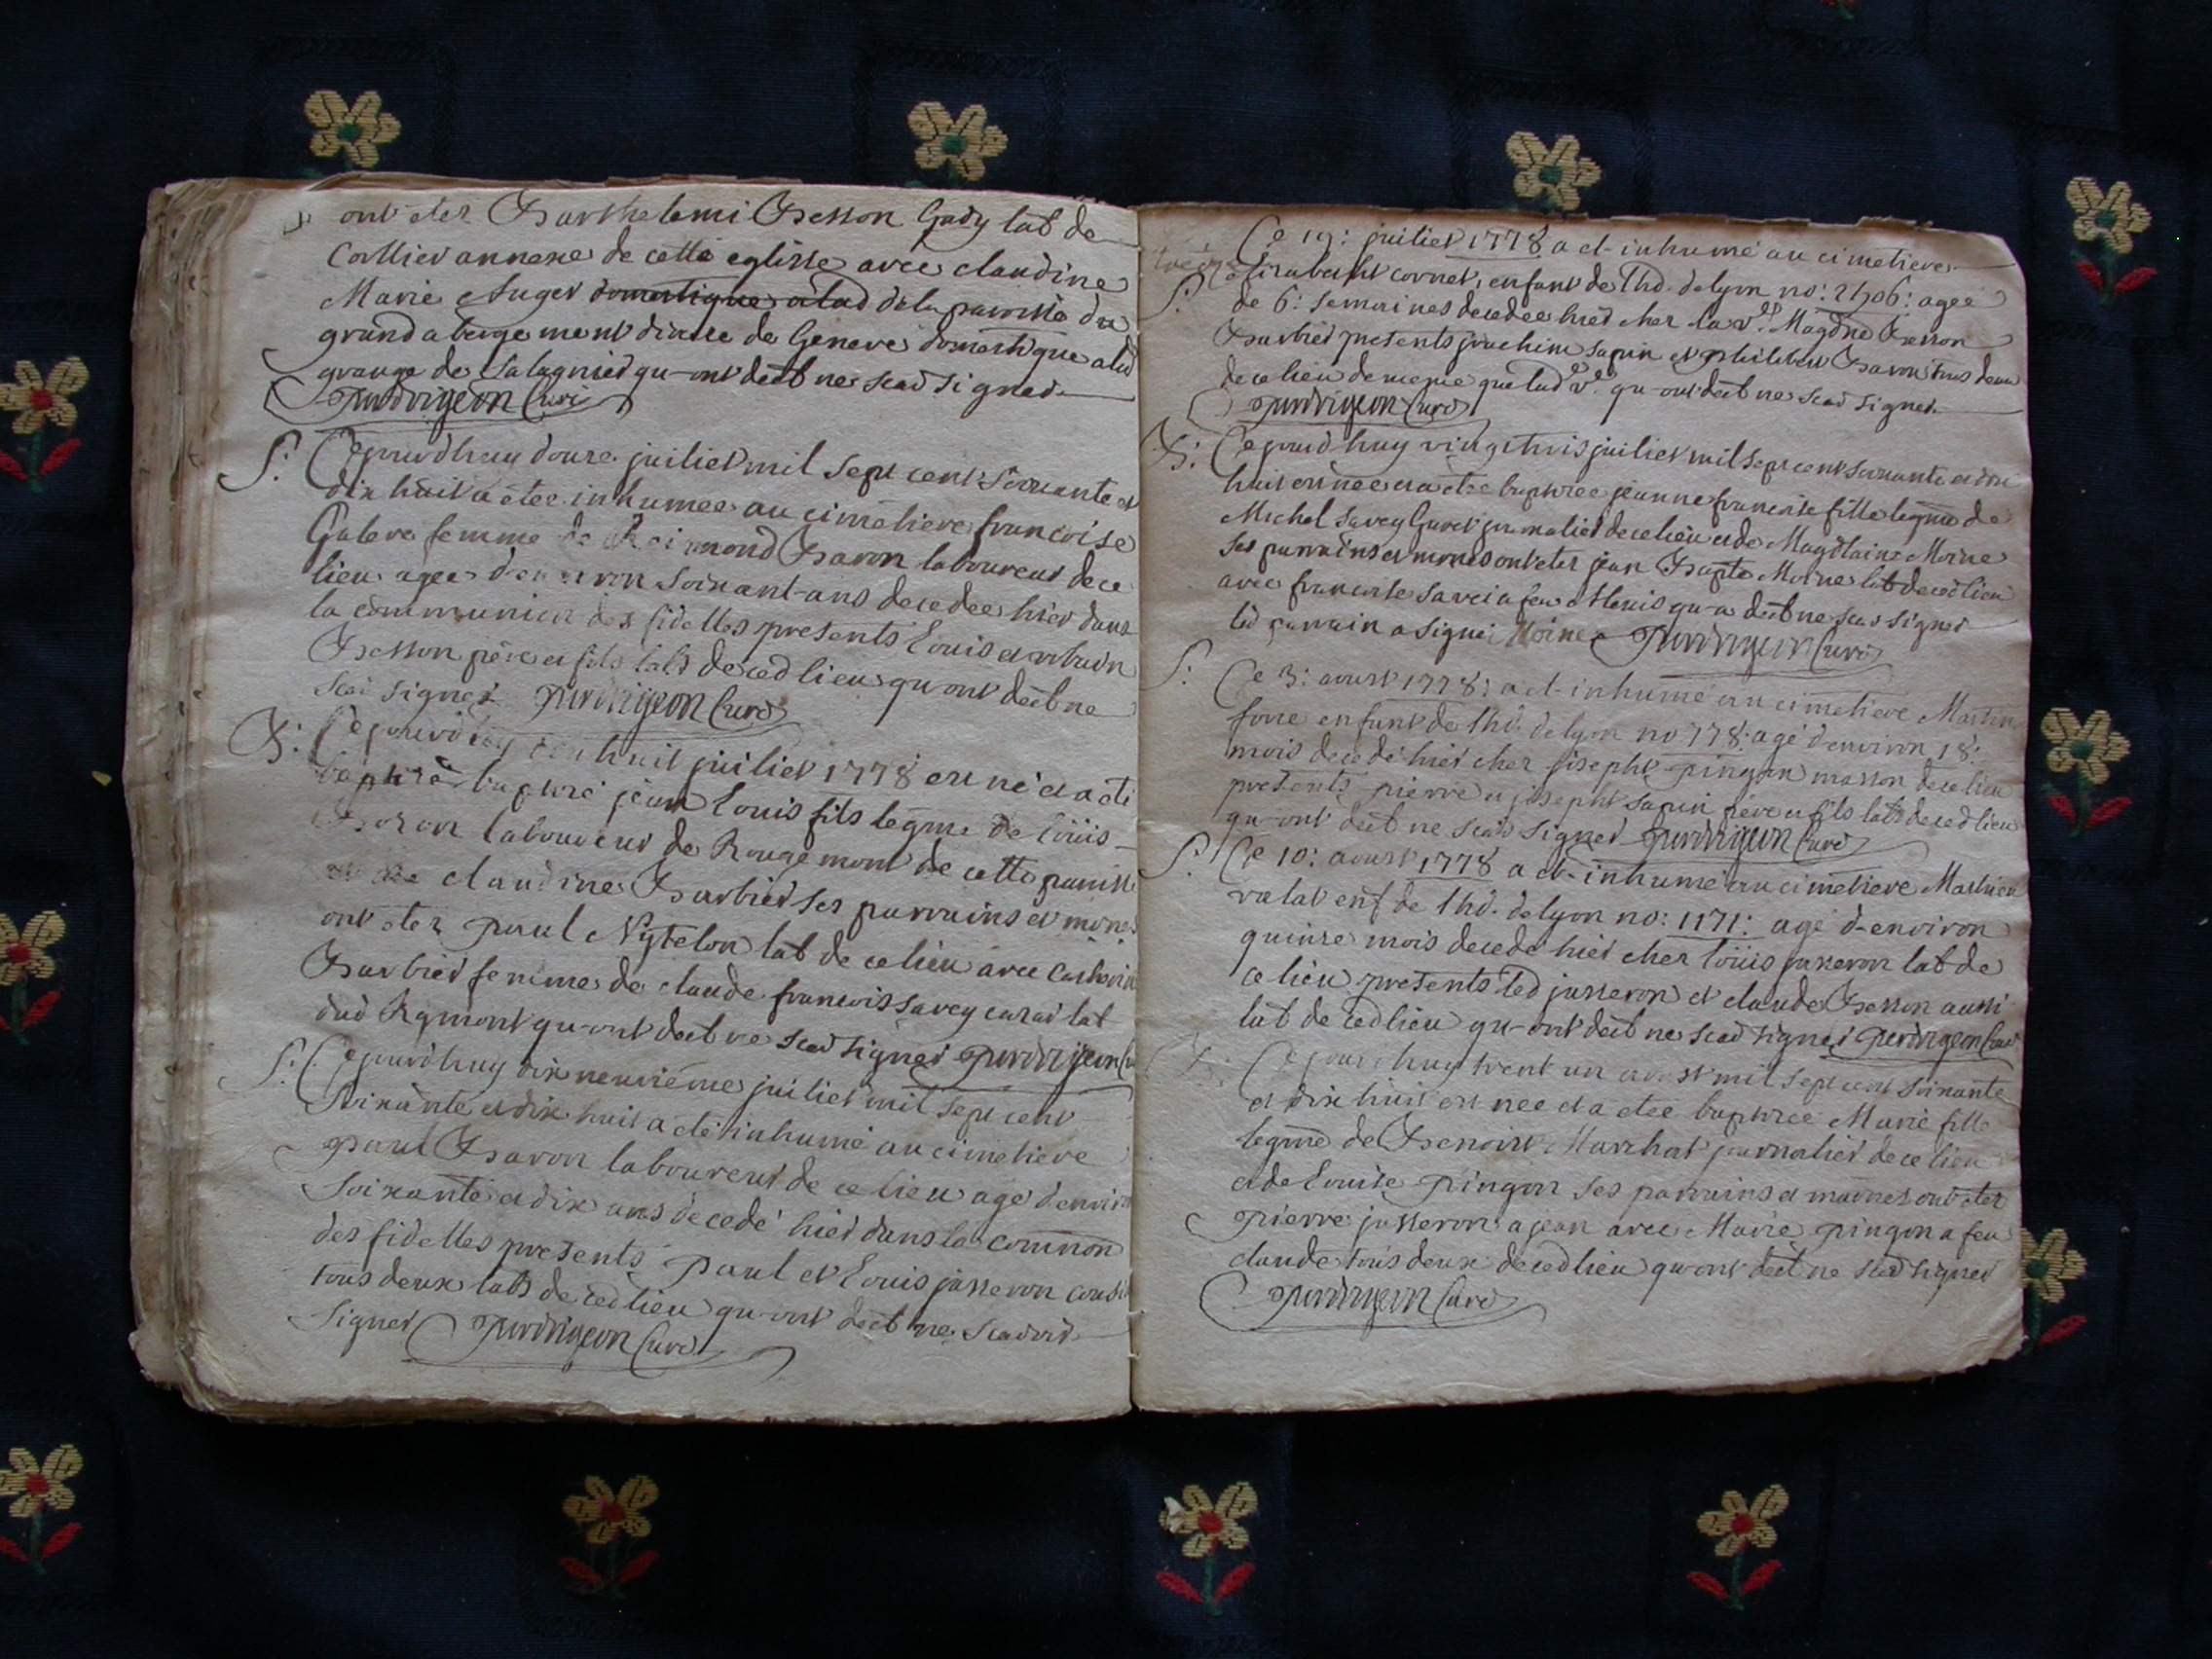 ont etez Barthelemi Besson Gady lab de
Corlier annexe de cette eglisse avec claudine
Marie Auger domestique alad dela paroisse du
grand abergement diocese de Geneve domestique alad
grange de Lalagnier qu-ont deeb ne scav signer
Perdrigeon Curé
S: Cejourdhuy douze juilliet mil sept cent soixante et
dix huit a etee inhumee au cimetiere francoise
Galere femme de Reimond Baron laboureur de ce
lieu agee denviron soixant-ans decedee hier dans
la communion des fidelles presents Louis et
Besson père et fils labs decedlieu qu ont deeb ne
scai signer Perdrigeon Curé
B: Cejourdhuy dix huit juiliet 1778 est né et a eté
baptizé jean Louis fils legme de Loüis
Bozon laboureur de Rougemont de cette paroisse
et de claudine Barbier ses parrains et
ont etez paul Nytelon lab de ce lieu avec
Barbier femme de claude francois savey lab
dud Rgmont qu-ont deeb ne scav signer Perdrigeon
S: Cejourdhuy dix neuviéme juiliet mil sept cent
soixante et dix huit a eté inhumé au cimetiere
paul Baron laboureur de ce lieu agé denviron
soixante et dix ans decedé hier dans la common
des fidelles presents Paul et Louis jasseron
tous deux labs decedlieu qu-ont deeb ne scavoir
signer Perdrigeon Curé
Ce 19: juiliet 1778 a et-inhumé au cimetiere
Elisabetht cornet, enfant de lhd. delyon no: agee
S: de 6: semaines decedee hier chez la ve. Magdne Besson
Barbier presents joachim sapin et philibert Baron tous deux
dece lieu de meme que lad ve. qu-ont deeb ne scav signer
Perdrigeon Curé
B: Cejourdhuy vingt trois juiliet mil sept cent soixante et dix
huit est nee et a etee baptizee jeanne francoise fille legme de
Michel savey Guret jornalier dece lieu et de Magdlaine Moine
ses parrains et ont etez jean Bapte Moine lab decedlieu
avec francoise a feu qu-a deeb ne scav signer
led parrain a signé Moine Perdrigeon Curé
S: Ce 3: aoust 1778: a et-inhumé au cimetiere Martin
enfant de lhd. delyon no 778: agé denviron 18:
mois decedé hier chez josepht pingon masson dece lieu
presents pierre et josepht sapin père et fils labs decedlieu
qu-ont deeb ne scav signer Perdrigeon Curé
S: Ce 10: aoust 1778 a et-inhumé au cimetiere Mathieu
valat enf de lhd. delyon no: 1171: agé d-environ
quinze mois decedé hier chez loüis jasseron lab de
ce lieu presents led jasseron et claude Besson aussi
lab de cedlieu qu-ont deeb ne scav signer Perdrigeon Curé
B: Cejourdhuy trent un aoust mil sept cent soixante
et dix huit est nee et a etee baptizee Marie fille
legme de Benoist Marchat journalier de ce lieu
et de Louise Pingon ses parrains et maines ont etez
pierre jasseron a jean avec Marie pingon a feu
claude tous deux decedlieu qu ont deeb ne scav signer
Perdrigeon Curé